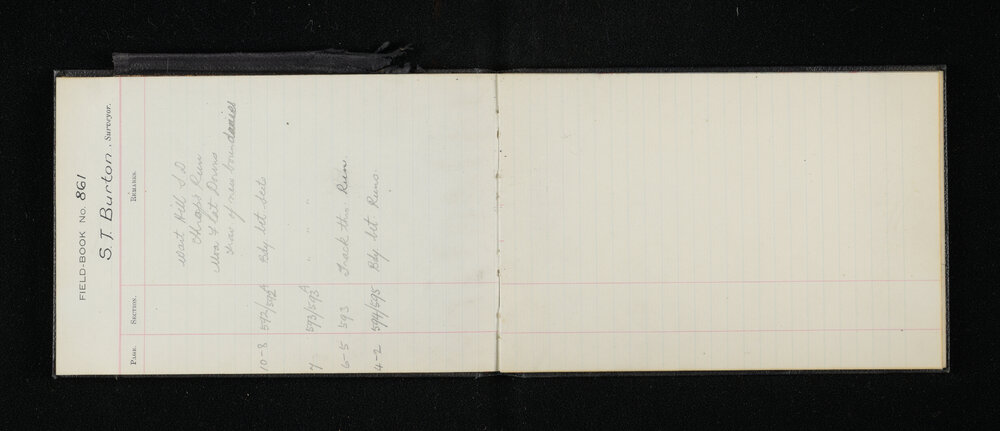 FIELD-BOOK No. 861
S. T. Burton, Surveyor.
PAGE. SECTION. REMARKS.
Hill S.D
Run
Moa Flat Downs
of new boundaries
10-8 592/592A Bdy bet Sects
7 593/593A " "
6-5 593 Track thro Run.
4-2 594/595 Bdy bet Runs.